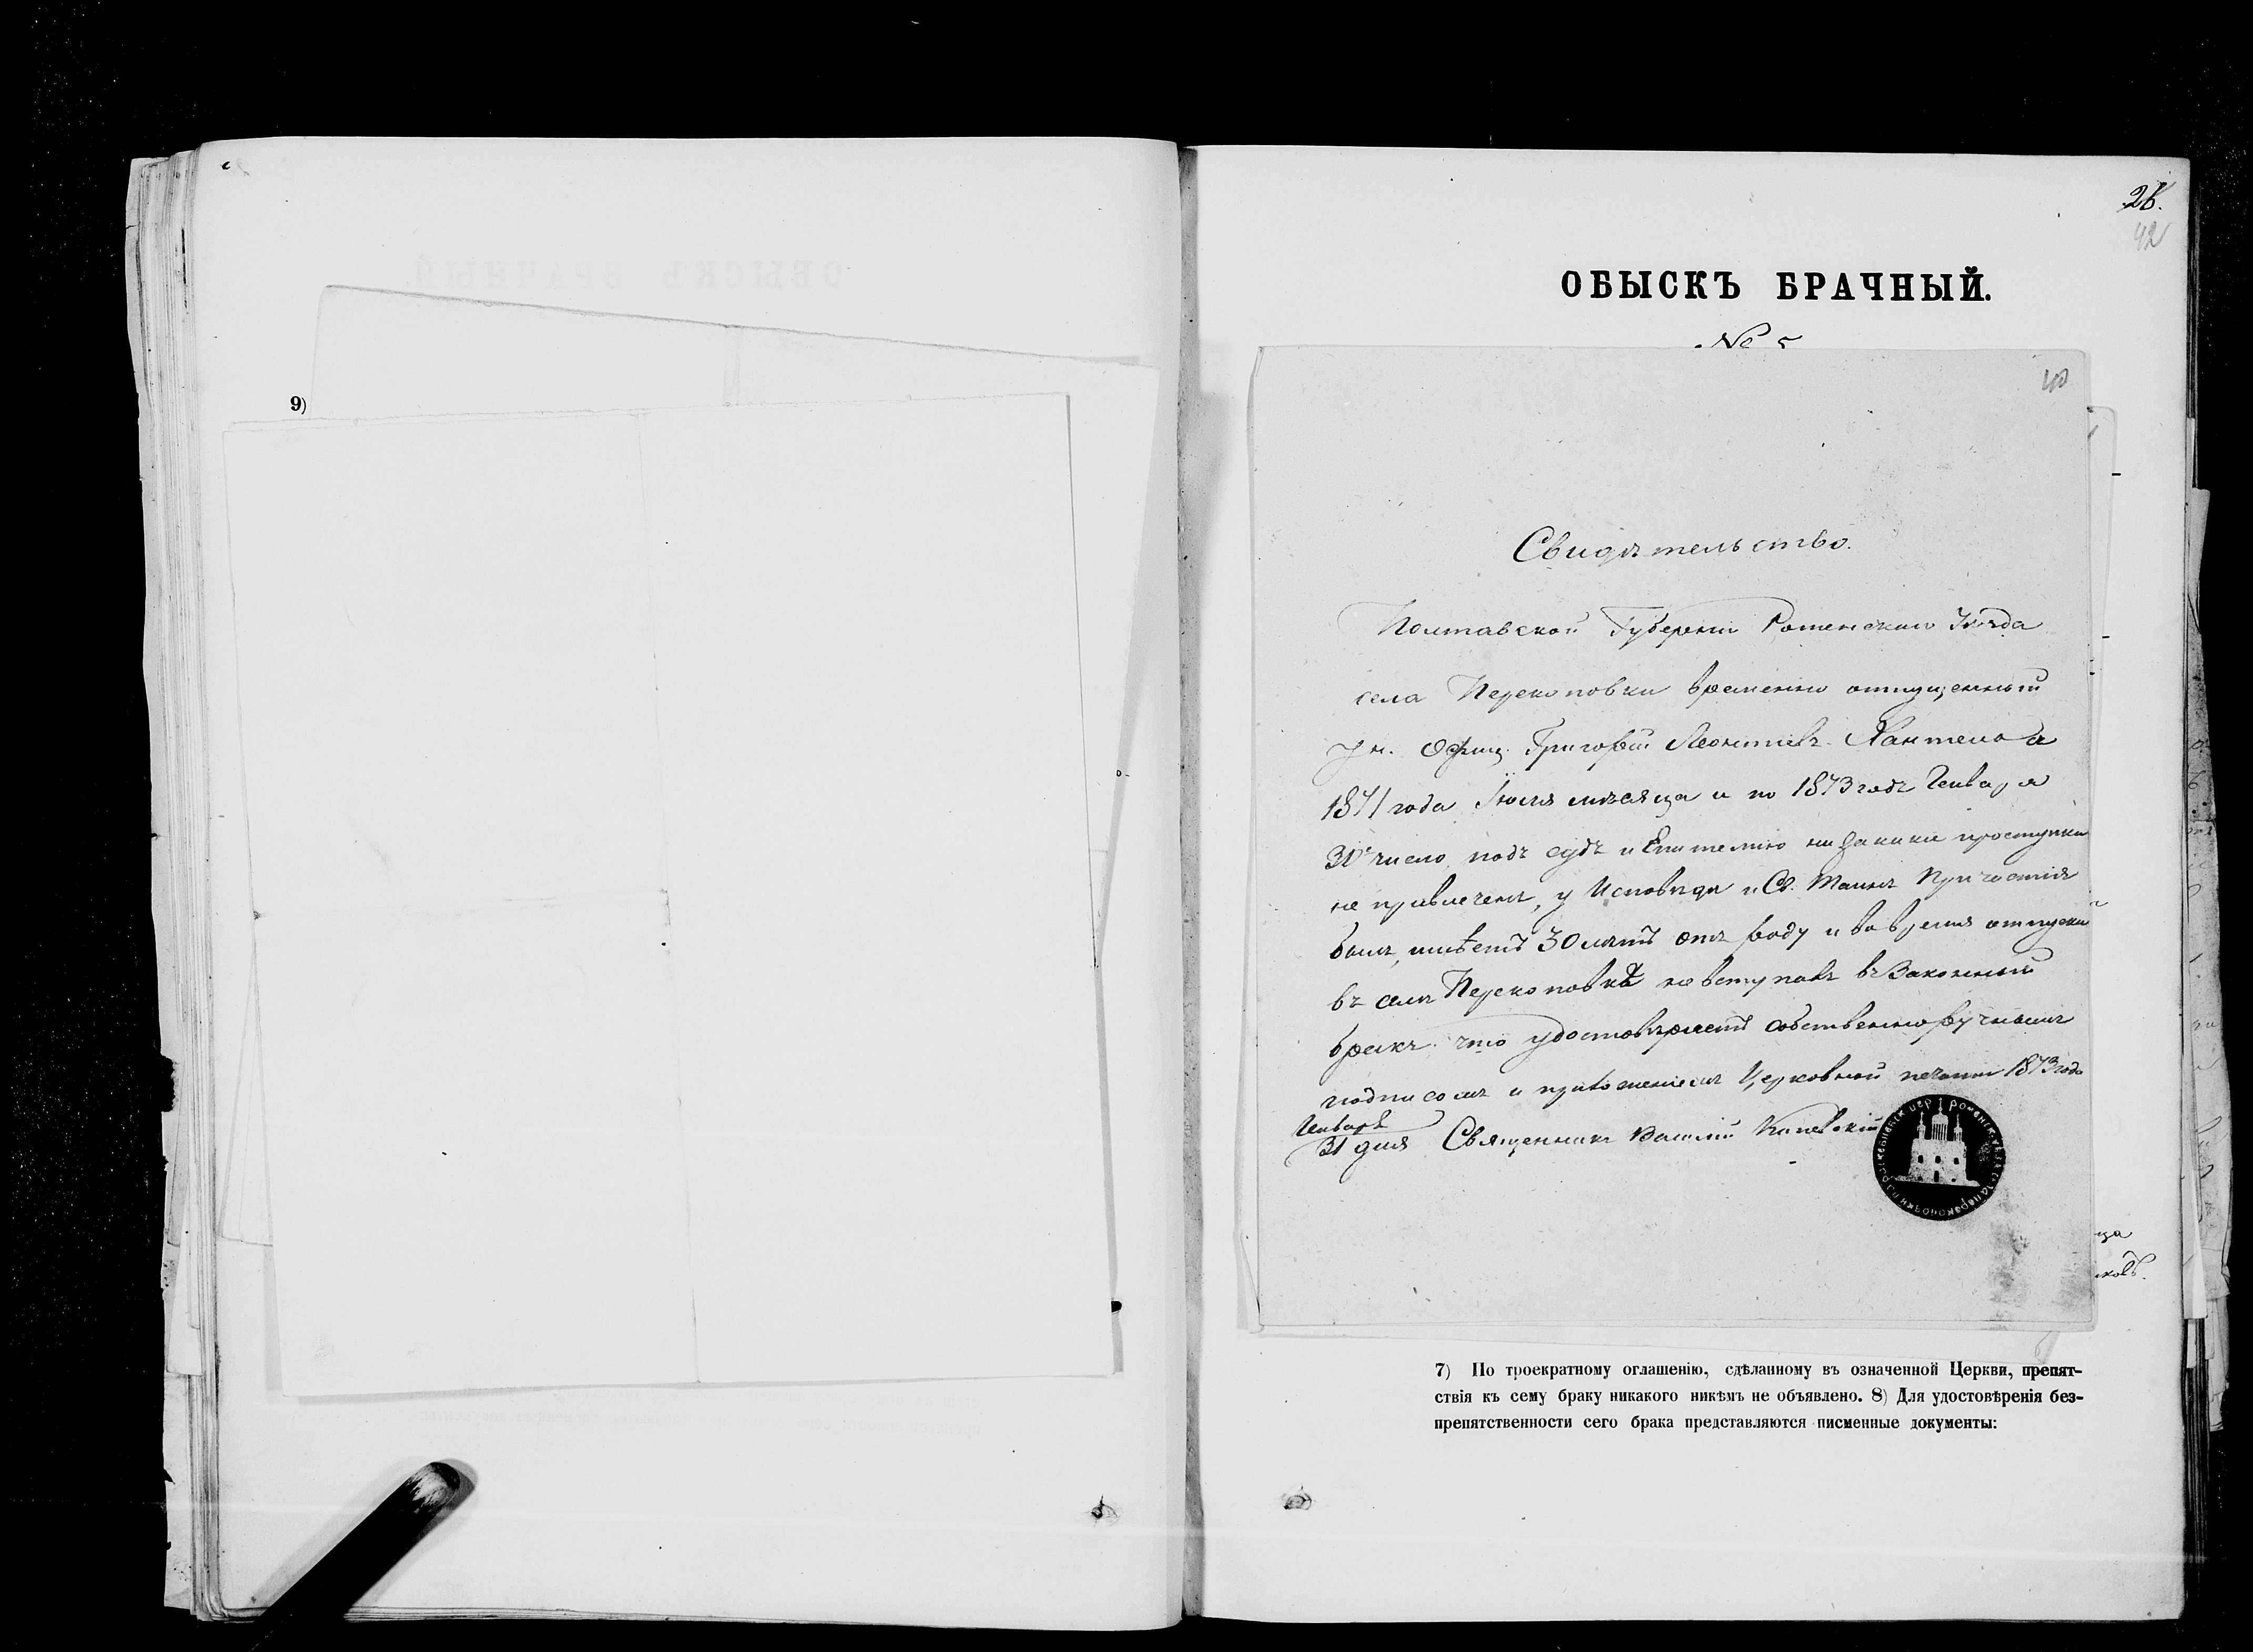 9)
26.
42
ОБЫСКЪ БРАЧНЫЙ.
№ 5
40
Свидѣтельство.
Полтавской Губерніи Роменскаго Уѣзда
села Перекоповки временно отпущенный
Ун. Офиц. Григорій Леонтіевъ
1871 года Іюля мѣсяца и по 1873 годъ Генваря
31е число подъ судъ и Епитемію ни за какіе проступки
не привлеченъ, у Исповѣди и Св. Таинъ Причастія
былъ, имѣетъ 30 лѣтъ отъ роду и во время отпуска
въ селѣ Перекоповкѣ не вступалъ въ Законный
бракъ. что удостовѣряетъ собственноручнымъ
подписомъ и приложеніемъ Церковной печати 1873 года
Генваря
31 дня Священникъ Василій
ца
ковъ.
7) По троекратному оглашенію, сдѣланному въ означенной Церкви, препят-
ствія къ сему браку никакого никѣмъ не объявлено. 8) Для удостовѣренія без-
препятственности сего брака представляются писменные документы: